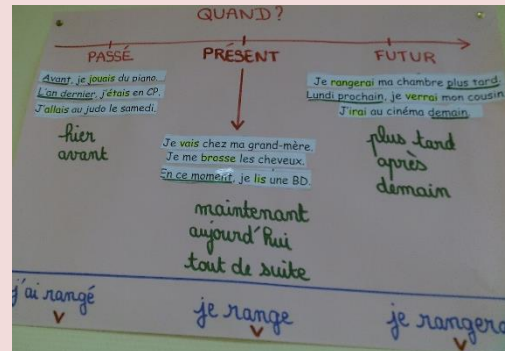 QUAND?
PASSÉ
PRÉSENT
FUTUR
Avant, je jouais du piano...
L'an dernier, j'étais en CP.
J'allais au judo le samedi.
hier
avant
Je vais chez ma grand-mère.
Je me brosse les cheveux.
En ce moment, je lis une BD.
maintenant
aujourd'hui
tout de suite
Je rangerai ma chambre plus tard.
Lundi prochain, je verrai mon cousin.
J'irai au cinéma demain.
plus tard
après
demain
j'ai rangé
je range
je rangera